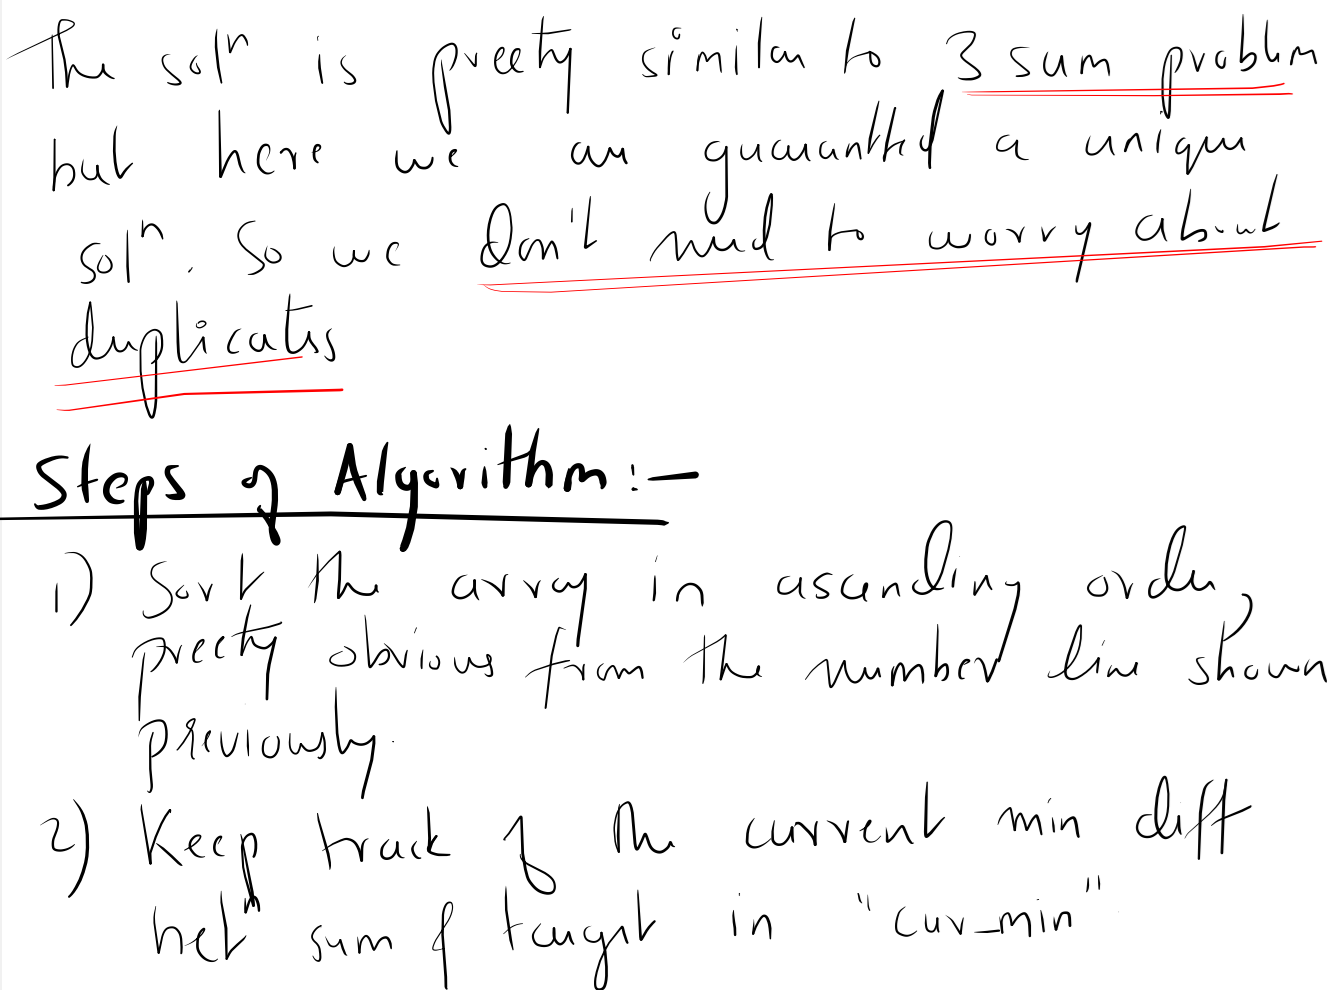 The solⁿ is preety similar to 3 sum problem
but here we are guaranteed a unique
solⁿ. So we don't need to worry about
duplicates
Steps of Algorithm:-
1) Sort the array in ascending order,
preety obvious from the number line shown
previously.
2) Keep track of the current min diff
betⁿ sum & target in "cur_min"